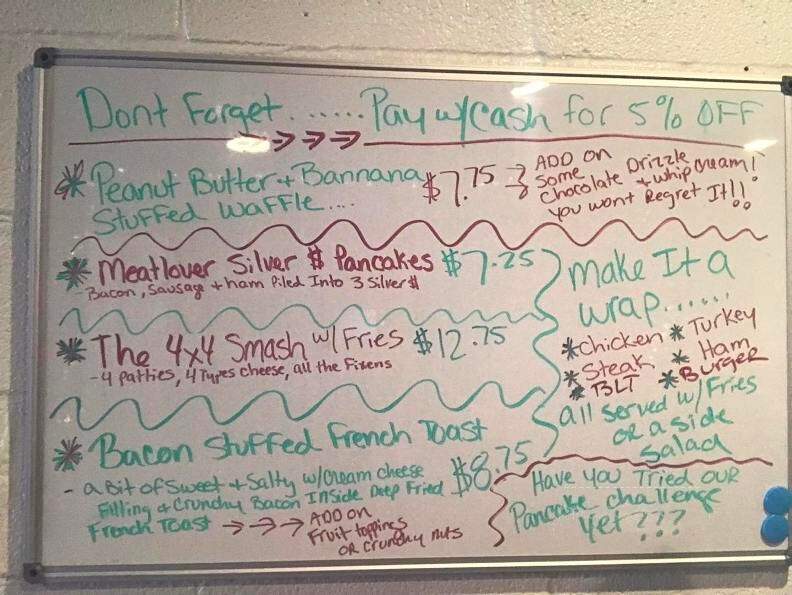 Dont Forget....... Pay w/cash for 5% OFF
* Peanut Butter + Bannana
Stuffed Waffle.... $7.75
ADD ON
Some
Chocolate Drizzle
+ whip cream!
You wont Regret It!!
* Meatlover Silver $ Pancakes $7.25
- Bacon, Sausage + ham Piled Into 3 Silver$
* The 4x4 Smash w/Fries $12.75
- 4 patties, 4 Types cheese, all the Fixens
make It a
wrap......
*Chicken * Turkey
*Steak * Ham
*BLT *Burger
all served w/Fries
OR a side
Salad
* Bacon Stuffed French Toast
- a Bit of Sweet + Salty w/cream cheese $8.75
Filling + Crunchy Bacon Inside Deep Fried
French Toast → → → ADD ON
Fruit toppings
OR crunchy nuts
Have you Tried our
Pancake challenge
Yet???